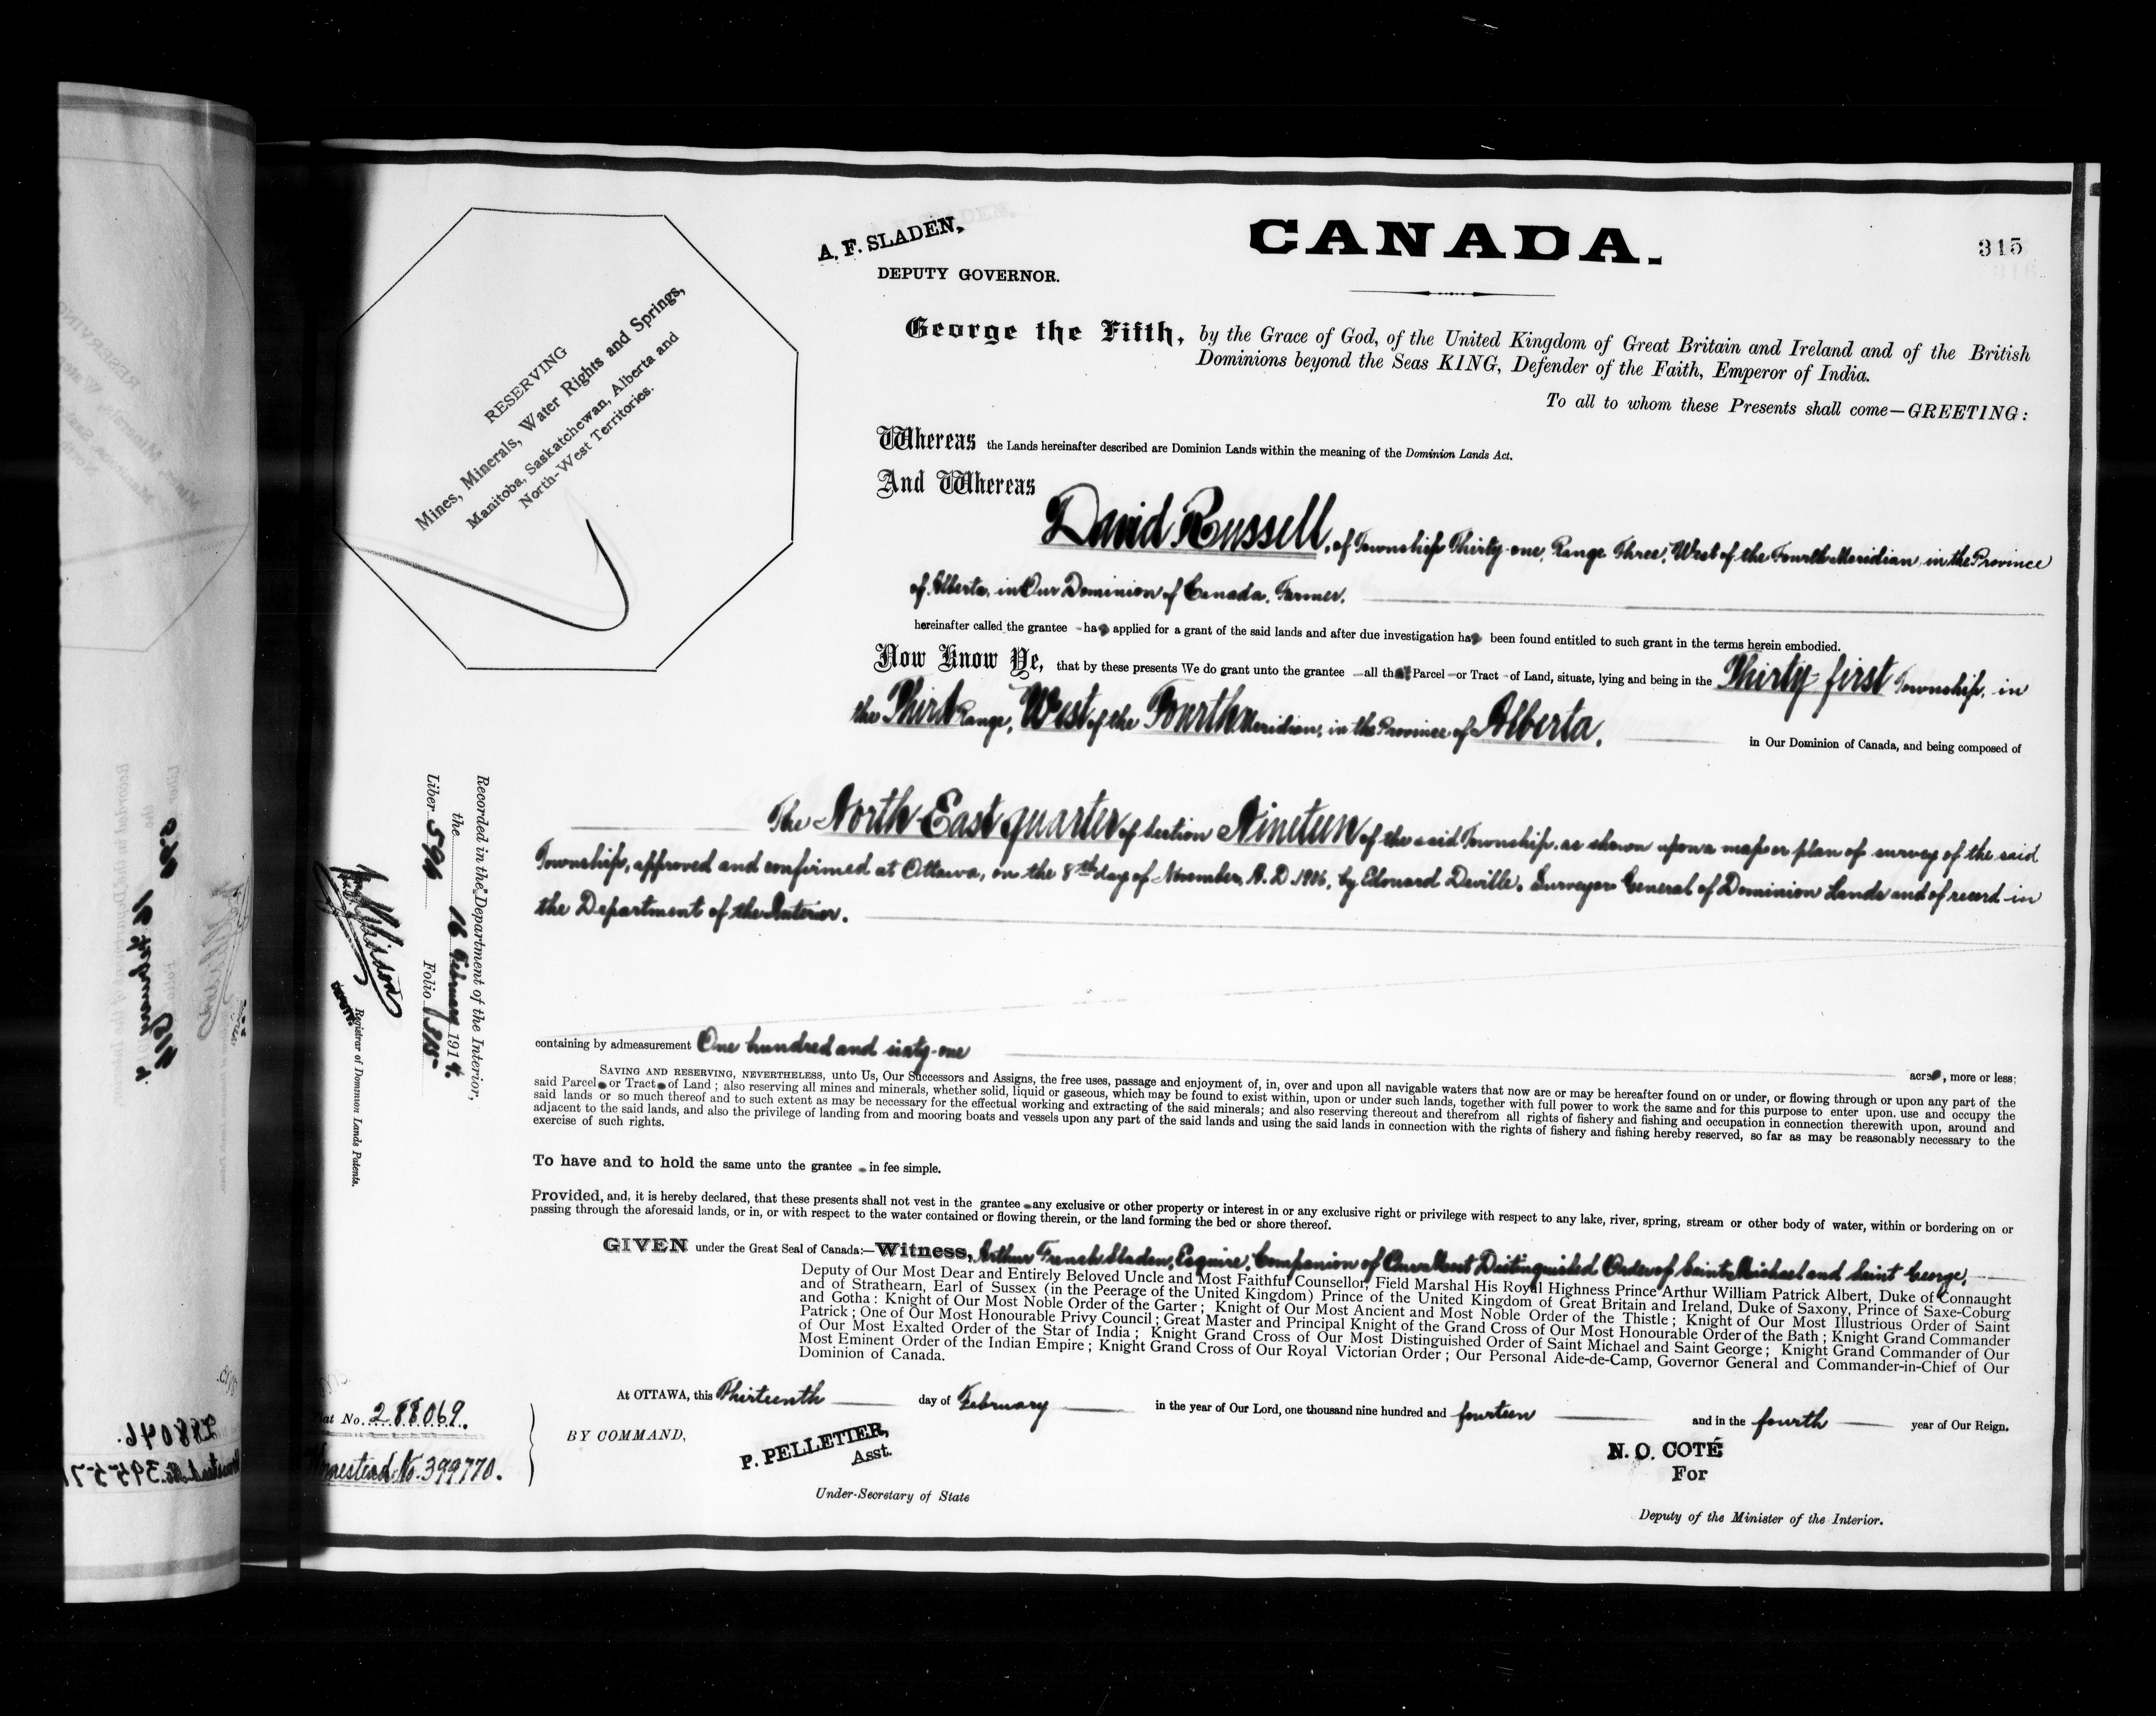 A. F. SLADEN,
DEPUTY GOVERNOR.
CANADA.
315
RESERVING
Mines, Minerals, Water Rights and Springs,
Manitoba, Saskatchewan, Alberta and
North-West Territories.
George the Fifth, by the Grace of God, of the United Kingdom of Great Britain and Ireland and of the British
Dominions beyond the Seas KING, Defender of the Faith, Emperor of India.
To all to whom these Presents shall come—GREETING:
Whereas the Lands hereinafter described are Dominion Lands within the meaning of the Dominion Lands Act.
And Whereas
David Russell, of Township Thirty-one, Range Three, West of the Fourth Meridian, in the Province
of Alberta, in Our Dominion of Canada, Farmer,
hereinafter called the grantee has applied for a grant of the said lands and after due investigation has been found entitled to such grant in the terms herein embodied.
Now Know Ye, that by these presents We do grant unto the grantee all that Parcel or Tract of Land, situate, lying and being in the Thirty-first Township, in
the Third Range, West of the Fourth Meridian, in the Province of Alberta,
in Our Dominion of Canada, and being composed of
The North East quarter of Section Nineteen of the said Township, as shown upon a map or plan of survey of the said
Township, approved and confirmed at Ottawa, on the 8th day of November, A.D. 1906, by Edouard Deville, Surveyor General of Dominion Lands and of record in
the Department of the Interior.
containing by admeasurement One hundred and sixty-one
acres, more or less;
SAVING AND RESERVING, NEVERTHELESS, unto Us, Our Successors and Assigns, the free uses, passage and enjoyment of, in, over and upon all navigable waters that now are or may be hereafter found on or under, or flowing through or upon any part of the
said Parcel or Tract of Land; also reserving all mines and minerals, whether solid, liquid or gaseous, which may be found to exist within, upon or under such lands, together with full power to work the same and for this purpose to enter upon, use and occupy the
said lands or so much thereof and to such extent as may be necessary for the effectual working and extracting of the said minerals; and also reserving thereout and therefrom all rights of fishery and fishing and occupation in connection therewith upon, around and
adjacent to the said lands, and also the privilege of landing from and mooring boats and vessels upon any part of the said lands and using the said lands in connection with the rights of fishery and fishing hereby reserved, so far as may be reasonably necessary to the
exercise of such rights.
To have and to hold the same unto the grantee in fee simple.
Provided, and, it is hereby declared, that these presents shall not vest in the grantee any exclusive or other property or interest in or any exclusive right or privilege with respect to any lake, river, spring, stream or other body of water, within or bordering on or
passing through the aforesaid lands, or in, or with respect to the water contained or flowing therein, or the land forming the bed or shore thereof.
GIVEN under the Great Seal of Canada:—Witness, Arthur French Sladen, Esquire, Companion of Our Most Distinguished Order of Saint Michael and Saint George,
Deputy of Our Most Dear and Entirely Beloved Uncle and Most Faithful Counsellor, Field Marshal His Royal Highness Prince Arthur William Patrick Albert, Duke of Connaught
and of Strathearn, Earl of Sussex (in the Peerage of the United Kingdom) Prince of the United Kingdom of Great Britain and Ireland, Duke of Saxony, Prince of Saxe-Coburg
and Gotha: Knight of Our Most Noble Order of the Garter; Knight of Our Most Ancient and Most Noble Order of the Thistle; Knight of Our Most Illustrious Order of Saint
Patrick; One of Our Most Honourable Privy Council; Great Master and Principal Knight of the Grand Cross of Our Most Honourable Order of the Bath; Knight Grand Commander
of Our Most Exalted Order of the Star of India; Knight Grand Cross of Our Most Distinguished Order of Saint Michael and Saint George; Knight Grand Commander of Our
Most Eminent Order of the Indian Empire; Knight Grand Cross of Our Royal Victorian Order; Our Personal Aide-de-Camp, Governor General and Commander-in-Chief of Our
Dominion of Canada.
At OTTAWA, this Thirteenth day of February in the year of Our Lord, one thousand nine hundred and fourteen and in the fourth year of Our Reign.
BY COMMAND,
P. PELLETIER,
Asst.
Under-Secretary of State
N. O. COTÉ
For
Deputy of the Minister of the Interior.
Recorded in the Department of the Interior,
the 16 February 1914.
Liber 596 Folio 315
DEPUTY
Registrar of Dominion Lands Patents.
No. 288069.
Homestead No. 399770.